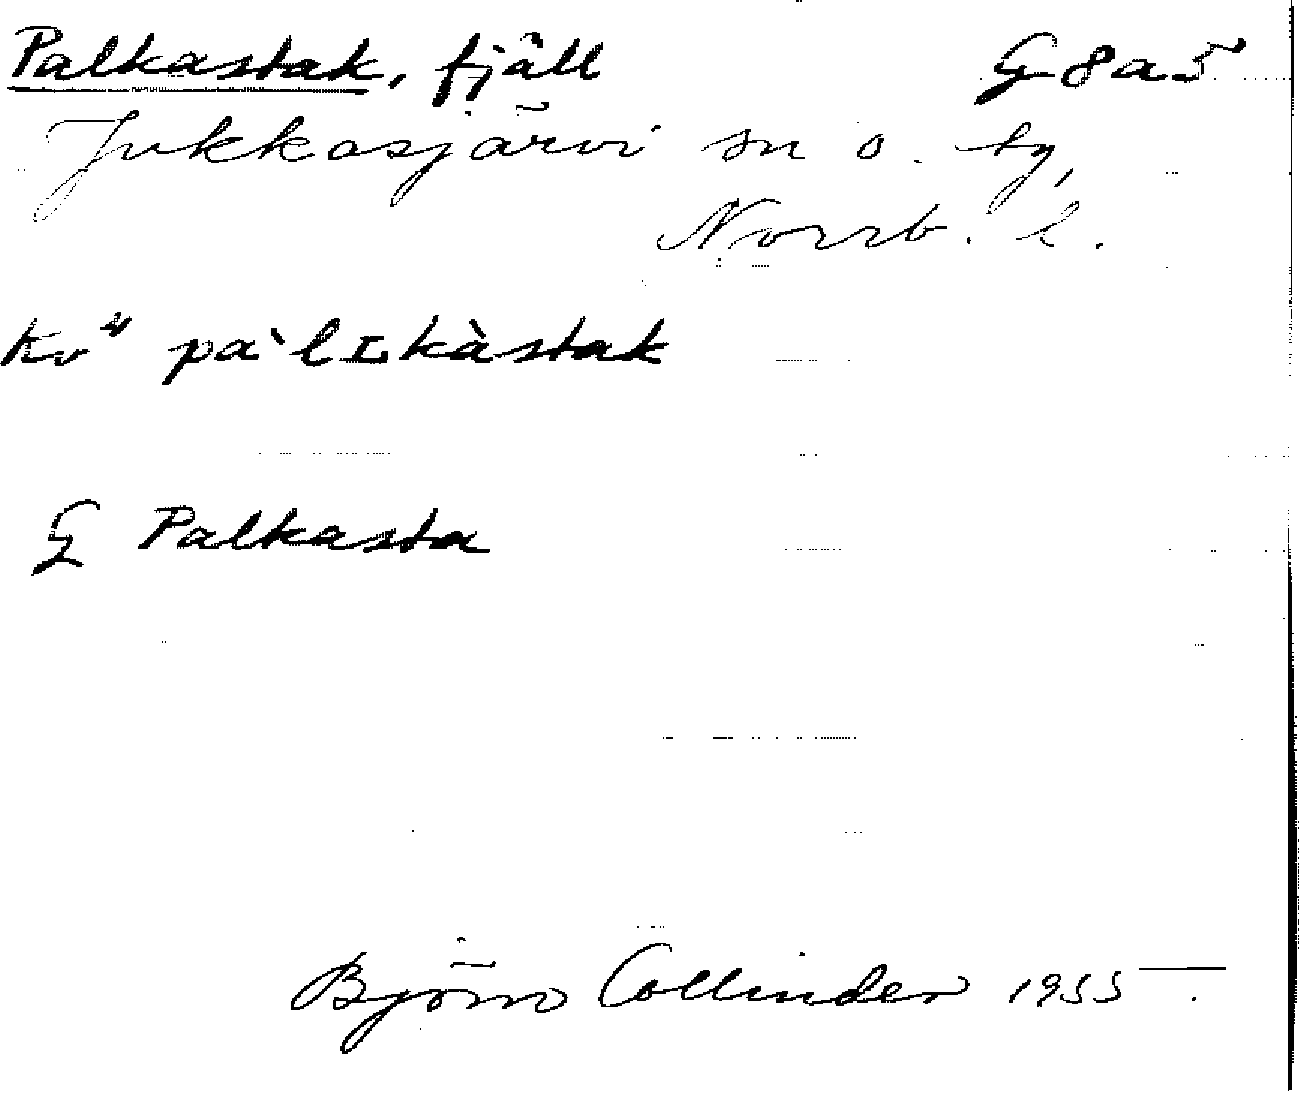 Palkastak, fjäll G 8 a 5
Jukkasjärvi sn o. tg,
Norrb. l.
Kv" pàlɪkàstak
G Palkasta
Björn Collinder 1955.